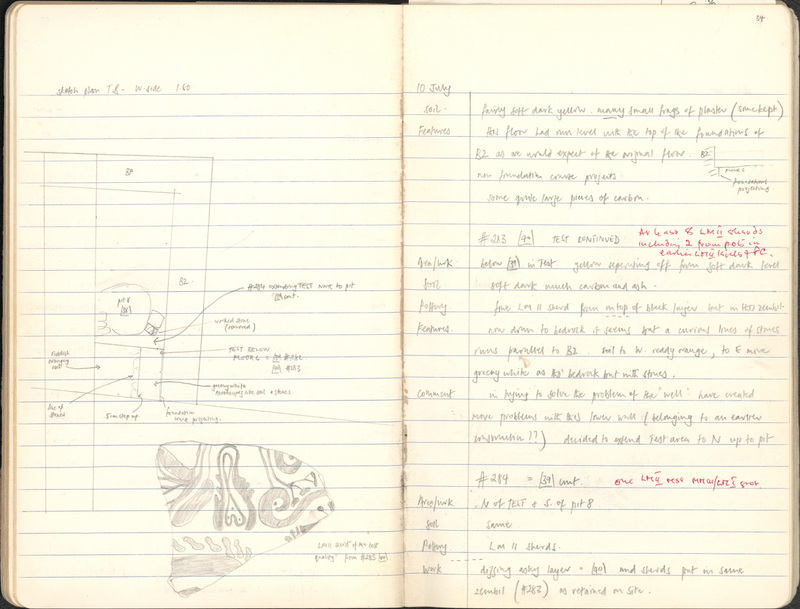 sketch plan T.8 - W. side 1:60
BA
B2.
M78
test continuing TEST NOW to pit
worked stone
(removed)
TEST BELOW
FLOOR 6 = #282
#283
reddish
orangey
soil
greeny white
soil + stones
line of
stones
5cm step up
foundation
course projecting.
LM II sherd of
quality from #283
34
10 July
Soil. fairly soft dark yellow. many small frags of plaster (some kept)
Features this floor had run level with the top of the foundations of
B2 as we would expect of the original floor. B2
now foundation course projects. FLOOR 6
foundations
projecting.
some quite large pieces of carbon.
#283 /90/ TEST CONTINUED At least 8 LM II sherds
including 2 from pots in
earlier LM II levels of PC.
Area/work below in Test yellow seperating off from soft dark level
Soil soft dark much carbon and ash.
Pottery fine LM II sherd from on top of black layer but in #282 zembil.
Features. now down to bedrock it seems but a curious line of stones
runs parallel to B2. Soil to W. reddy orange, to E more
greeny white as B2 bedrock but with stones.
Comment in trying to solve the problem of the 'well' have created
more problems with this lower wall (belonging to an earlier
construction??) decided to extend Test area to N up to pit
#284 = /39/ cont. one LM II rest MM III/LM I spot.
Area/work . N of TEST & S. of pit 8
Soil same
Pottery LM II sherds.
Work digging ashy layer = /90/ and sherds put in same
zembil (#283) as retained on site.